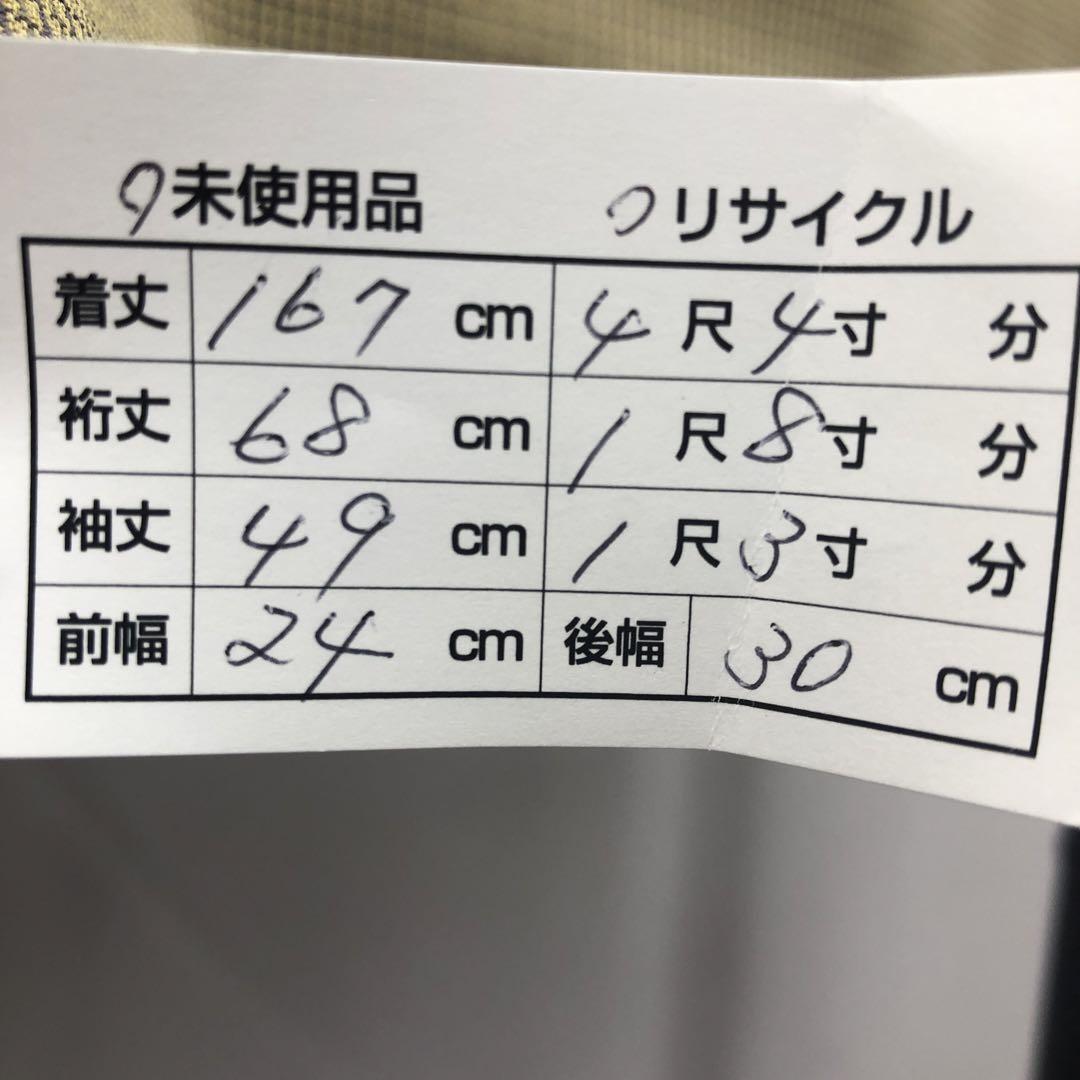 未使用品 リサイクル
着丈 167 cm 4 尺 4 寸 分
裄丈 68 cm 1 尺 8 寸 分
袖丈 49 cm 1 尺 3 寸 分
前幅 24 cm 後幅 30 cm